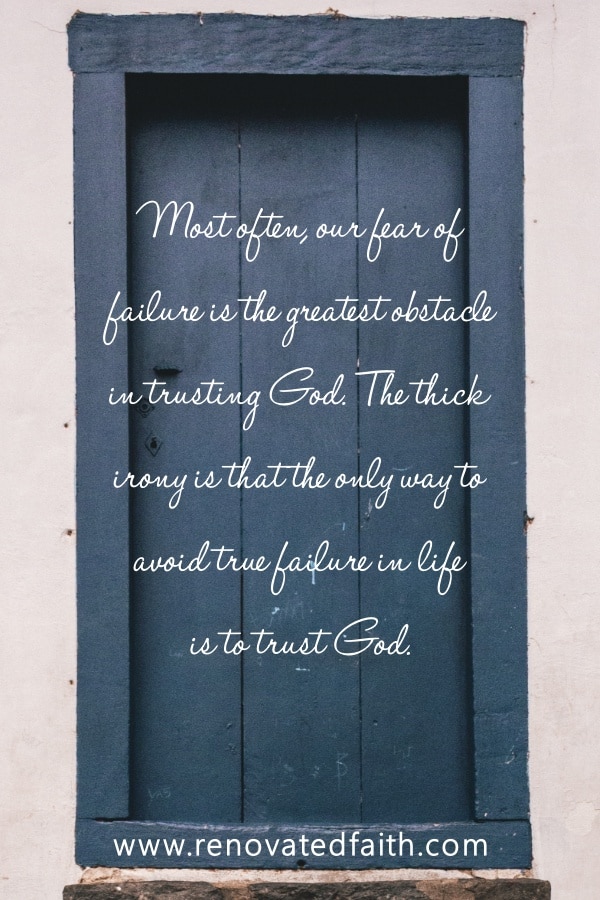 Most often, our fear of
failure is the greatest obstacle
in trusting God. The thick
irony is that the only way to
avoid true failure in life
is to trust God.
www.renovatedfaith.com